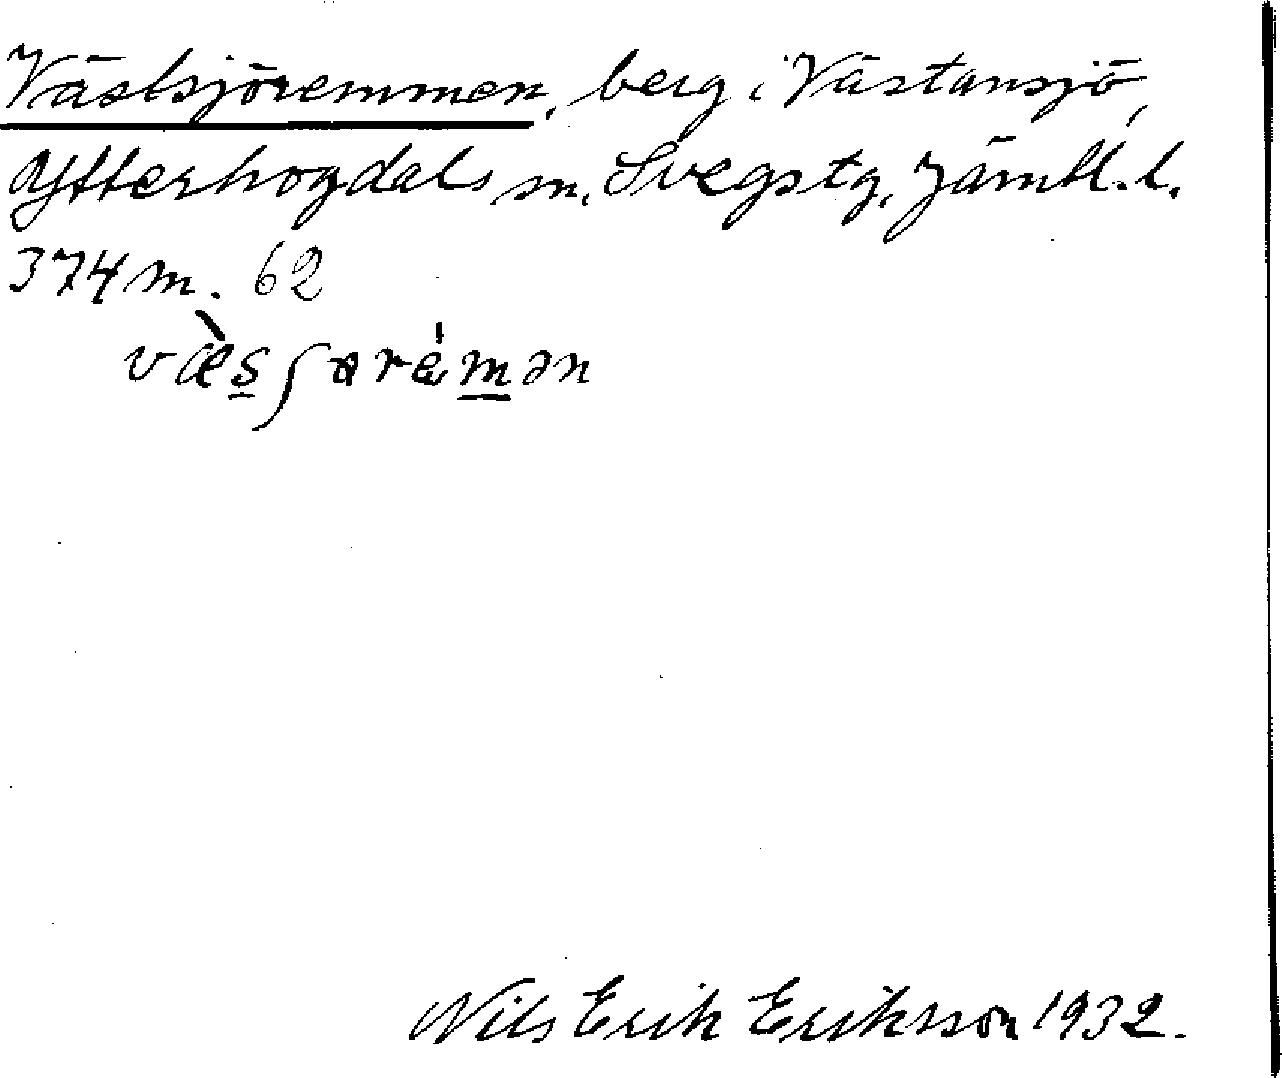 Västsjöremmen, berg i Västansjö,
Ytterhogdals sn, Svegs tg, Jämtl. l.
374 m. 62
Nils Erik Eriksson 1932.